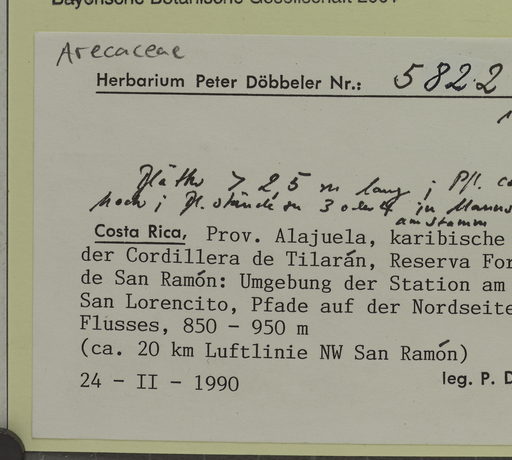 Bayerische Botanische Gesellschaft 2001
Arecaceae
Herbarium Peter Döbbeler Nr.: 5822
> 2,5 m lang; Pfl.
hoch; Bl.stände zu 3 oder 4 in
am Stamm
Costa Rica, Prov. Alajuela, karibische
der Cordillera de Tilarán, Reserva For
de San Ramón: Umgebung der Station am
San Lorencito, Pfade auf der Nordseite
Flusses, 850 - 950 m
(ca. 20 km Luftlinie NW San Ramón)
24 - II - 1990 leg. P. D